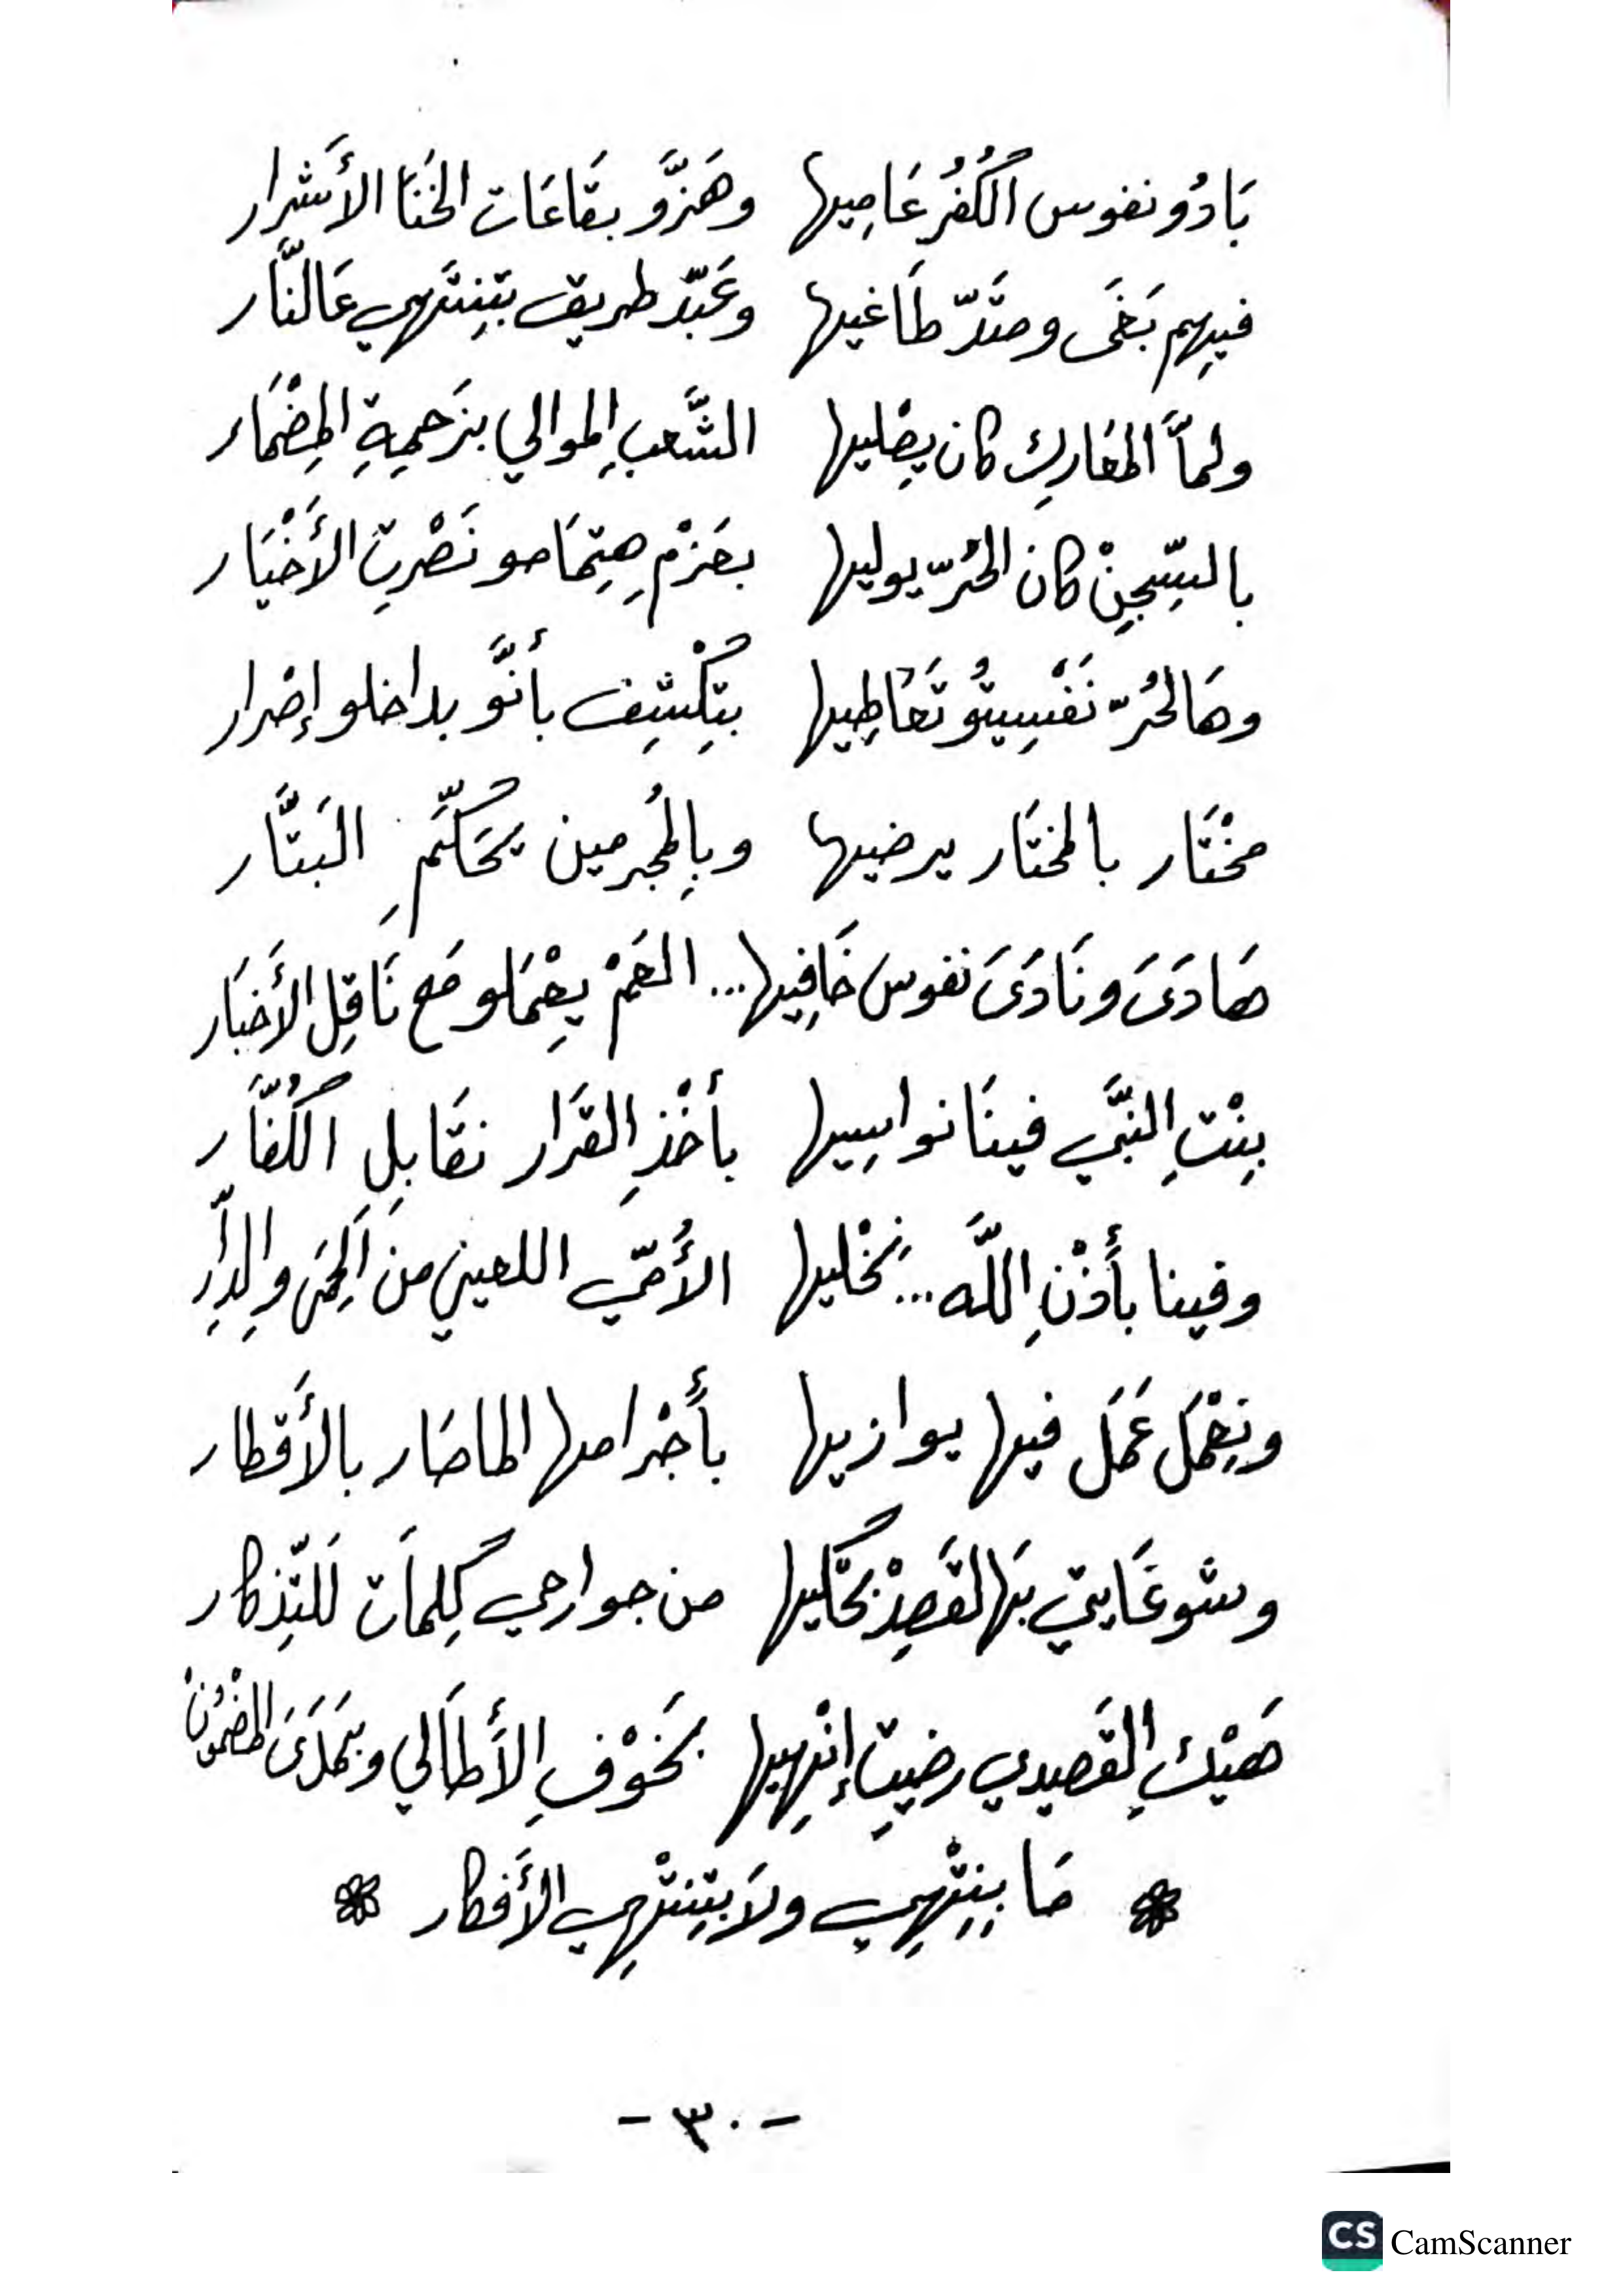 بَادُو نفوس الكُفُر عَاميها وهَزَّو بقَاعَات الخَنَا الأَشرار
فيهم بَغَى ومتَدّ طَاغيها وعَبّد طريق بتِنتَهي عَالنَّار
ولمَّا المعَارِك كان يصْليها الشَّعبِ الموالي بزَحمِةِ المِضْمَار
بالسّجِنْ كان الحُرّ يوليها بعَزْمِ هِتِمَامو نَصْرِتِ الأَخْيَار
وهَالحُرّ نَفْسِيتُو تعَاطِيها بتِكْشِف بأنَّو بداخلو إصْرار
مخْتَار بالمختَار يرضيها وبِالمُجرمين يحَكِّم البَتَّار
هَادَى ونَادَى نفوس خَافِيها... العَمْ يِعْمَلو مَع نَاقِل الأَخبَار
بِنْتِ النبَّي فينَا نواسِيها بأخْذِ القرَار نقَابِلِ الكُفَّار
وفينا بأَذْنِ اللَّه... نخْليها الأُمّي اللعيني من الحِمَى والدَّار
ونِعْمَل عَمَل فيها يوازيها بأَجْرامها الماصَار بالأَقطار
وشو غَايتي بَهالقَصِدْ بحْكيها من جوارحي كِلِمَات لَلتّذكار
هَيْكِ القَصيدي رضيت إنْهِيها بخَوْفِ الأَطَالي وبمَدَى المضْمُونْ
مَا بيِنْتِهِي ولاَ بتِنتْهِي الأَفكار
- ٣٠ -
CS CamScanner